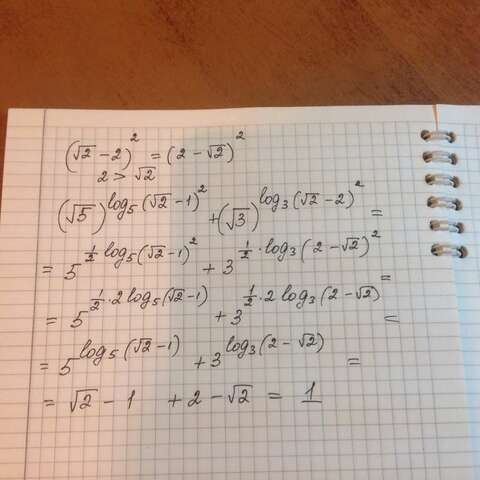 (√2 − 2)² = (2 − √2)²
2 > √2
(√5)^(log₅(√2 − 1)²) + (√3)^(log₃(√2 − 2)²) =
= 5^(½ · log₅(√2 − 1)²) + 3^(½ · log₃(2 − √2)²) =
= 5^(½ · 2 log₅(√2 − 1)) + 3^(½ · 2 log₃(2 − √2)) =
= 5^(log₅(√2 − 1)) + 3^(log₃(2 − √2)) =
= √2 − 1 + 2 − √2 = 1